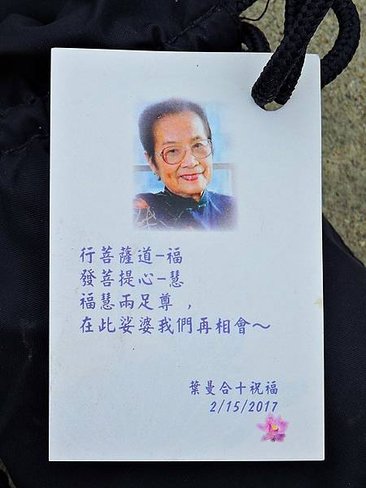 行菩薩道-福
發菩提心-慧
福慧兩足尊，
在此娑婆我們再相會～
葉曼合十祝福
2/15/2017